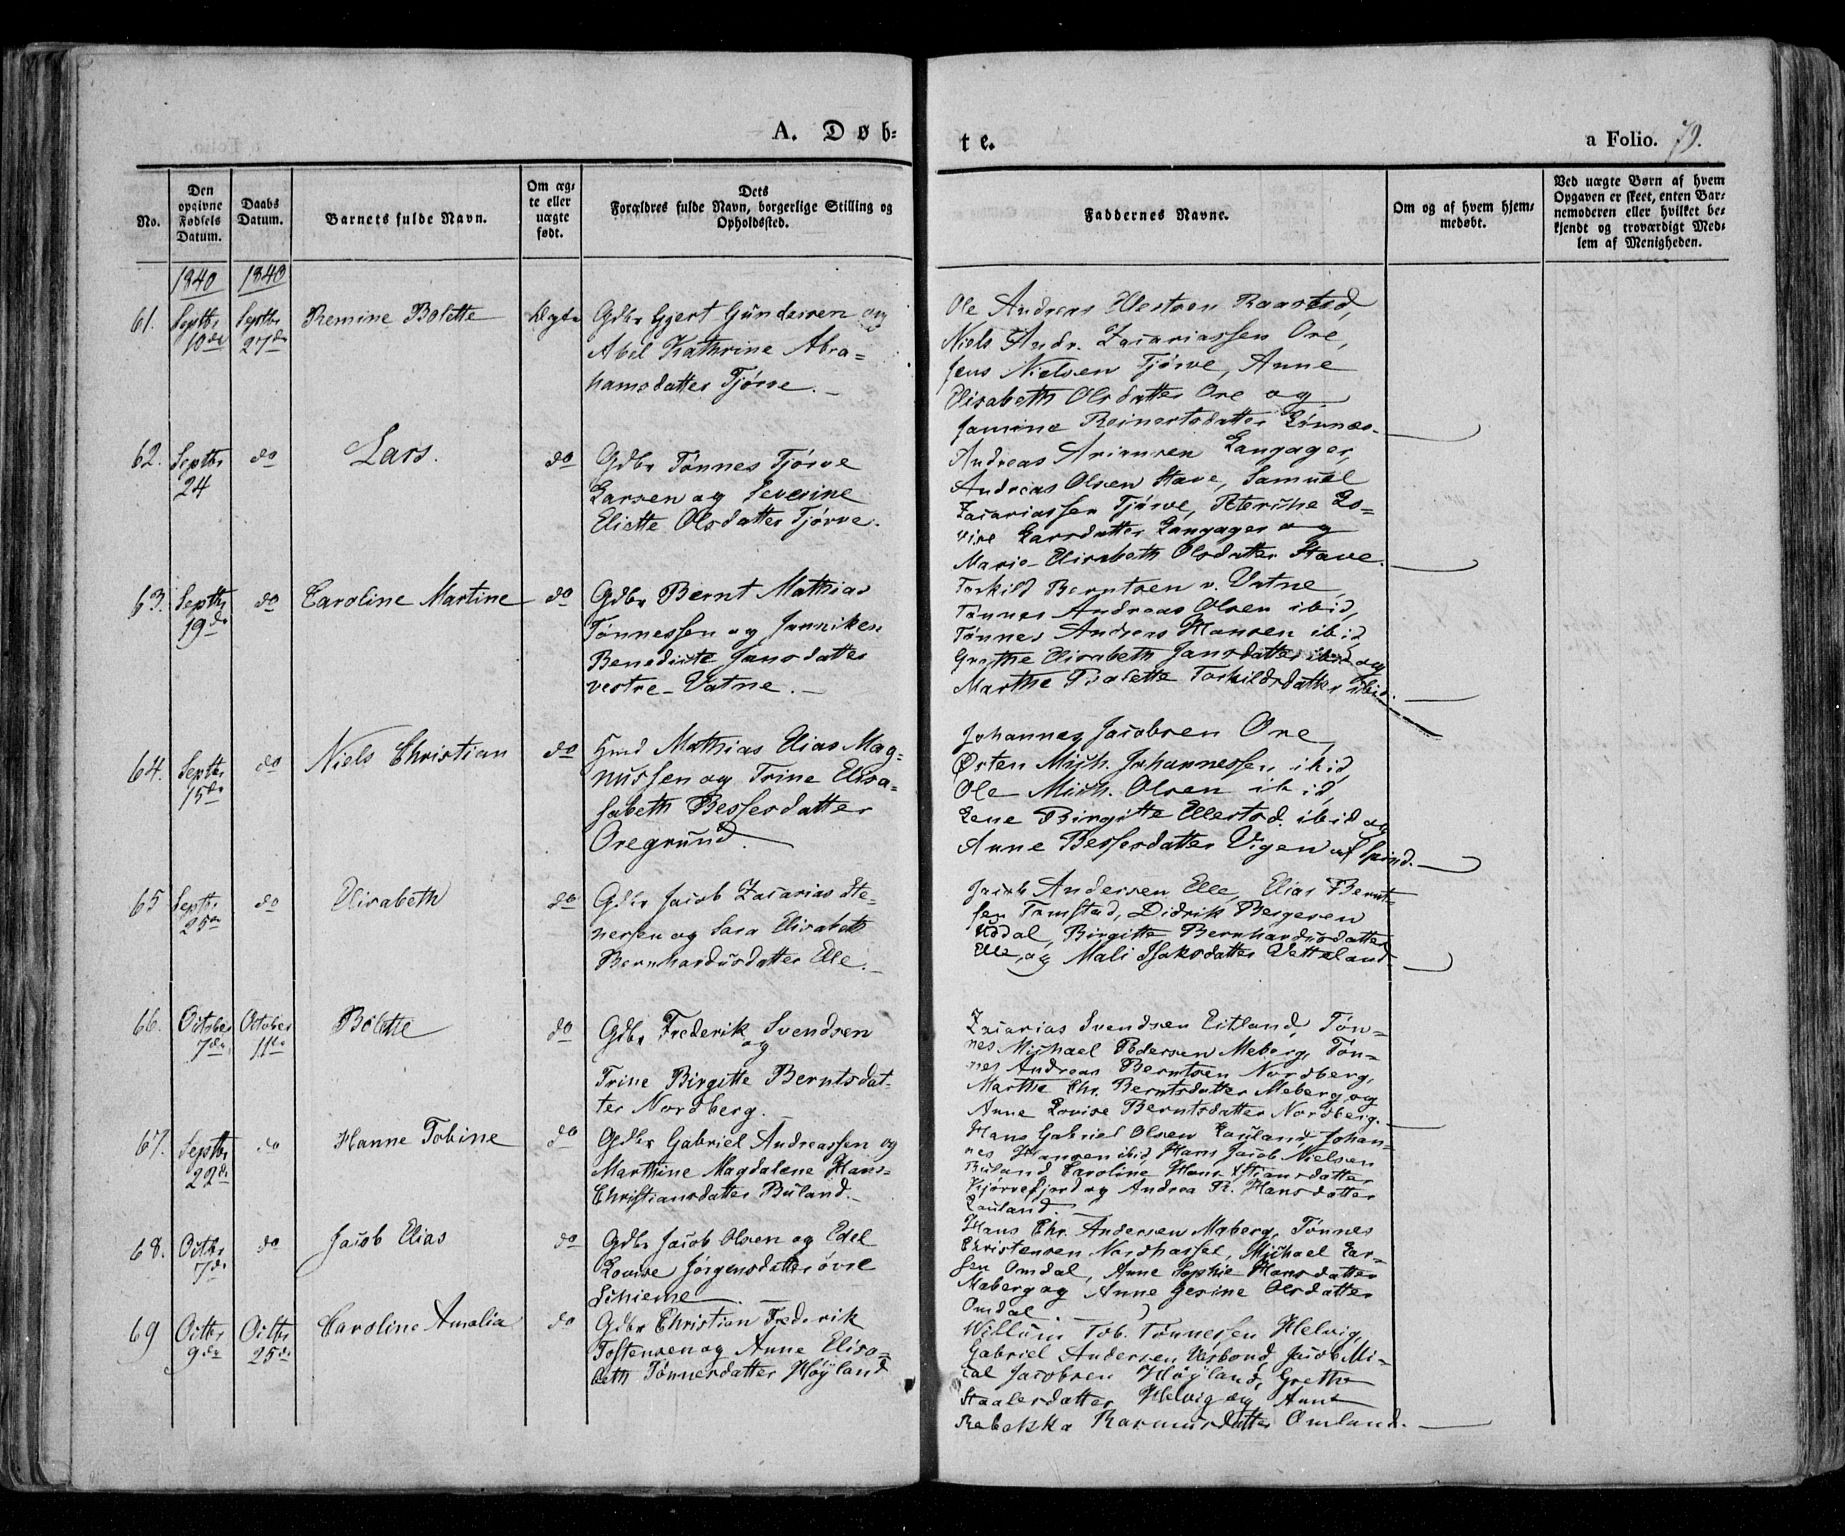 A. Døb=
te.
a Folio. 79.
No.
Den opgivne Fødsels Datum.
Daabs Datum.
Barnets fulde Navn.
Om æg= te eller uægte født.
Dets
Forældres fulde Navn, borgerlige Stilling og
Opholdssted.
Faddernes Navne.
Om og af hvem hjem= medøbt.
Ved uægte Børn af hvem
Opgaven er skeet, enten Bar=
nemoderen eller hvilket be=
kjendt og troværdigt Med=
lem af Menigheden.
1840 1840
61. Septbr 10de Septbr 27de Remine Bolette Ægte Gdbr Gjert Gundersen og
Abel Kathrine Abra=
hamsdatter Tjørve.
Ole Andreas Raastad,
Niels Andr. Zacariassen Ore,
Jens Nielsen Tjørve, Anne
Elisabeth Olsdatter Ore og
Jamine Reinertsdatter
62. Septbr 24 do Lars. do Gdbr Tønnes Tjørve
Larsen og Severine
Eliette Olsdatter Tjørve.
Andreas Langager,
Andreas Olsen Stave, Samuel
Zacariassen Tjørve, Lo=
vise Larsdatter Langager og
Marie Elisabeth Olsdatter Stave.
63. Septbr 19de do Caroline Martine do Gdbr Bernt Mathias
Tønnessen og Janniken
Benedicte Jansdatter
vestre-Vatne.
Torkild Berntsen v. Vatne,
Tønnes Andreas Olsen ibid,
Tønnes Andreas Hansen ibid,
Grethe Elisabeth Jansdatter ibid og
Marthe Bolette Torkildsdatter ibid.
64. Septbr 15de do Niels Christian do Hmd Mathias Elias Mag=
nussen og Trine Elisa=
beth Bessesdatter
Oregrund.
Johannes Jacobsen Ore,
Østen Mich. Johannessen ibid,
Ole Mich. Olsen ibid,
Lene Birgitte Ellestsd. ibid og
Anne Bessesdatter Vigen af Spind.
65 Septbr 25de do Elisabeth do Gdbr Jacob Zacarias Ste=
nersen og Sara Elisabeth
Bernhardusdatter Elle.
Jacob Andersen Elle, Elias Bernt=
sen Tomstad, Didrik Bergesen
Uddal, Birgitte Bernhardusdatter
Elle, og Mali Isaksdatter Vetteland.
66. October 7de October 11te Bolette do Gdbr Frederik Svendsen
og
Trine Birgitte Berntsdat=
ter Nordberg.
Zacarias Svendsen Eitland, Tøn=
nes Michael Pedersen Meberg, Tøn=
nes Andreas Berntsen Nordberg,
Marthe Chr. Berntsdatter Meberg og
Anne Lovise Berntsdatter Nordberg.
67. Septbr 22de do Hanne Tobine do Gdbr Gabriel Andreassen og
Marthine Magdalene Hans
Christiansdatter Buland.
Hans Gabriel Olsen Lauland, Johan=
nes Hansen ibid, Hans Jacob Nielsen
Buland, Caroline Hans Xstiansdatter
Kjørrefjord og Andrea R. Hansdatter
Lauland.
68. Octbr 7de do Jacob Elias do Gdbr Jacob Olsen og Edel
Lovise Jørgensdatter øvre
Schieme
Hans Chr. Andersen Maberg, Tønnes
Christensen Nordhassel, Michael Lar=
sen Omdal, Anne Sophie Hansdatter
Maberg og Anne Gesine Olsdatter
Omdal
69 Octbr 9de Octbr 25de Caroline Amalia do Gdbr Christian Frederik
Tostensen og Anne Elisa=
beth Tønnesdatter Høyland
Willum Tob. Tønnessen Helvig,
Gabriel Andersen Jacob Mi=
cal Jacobsen Høyland, Grethe
Staalesdatter Helvig og Anne
Rebekka Rasmusdatter Omland.